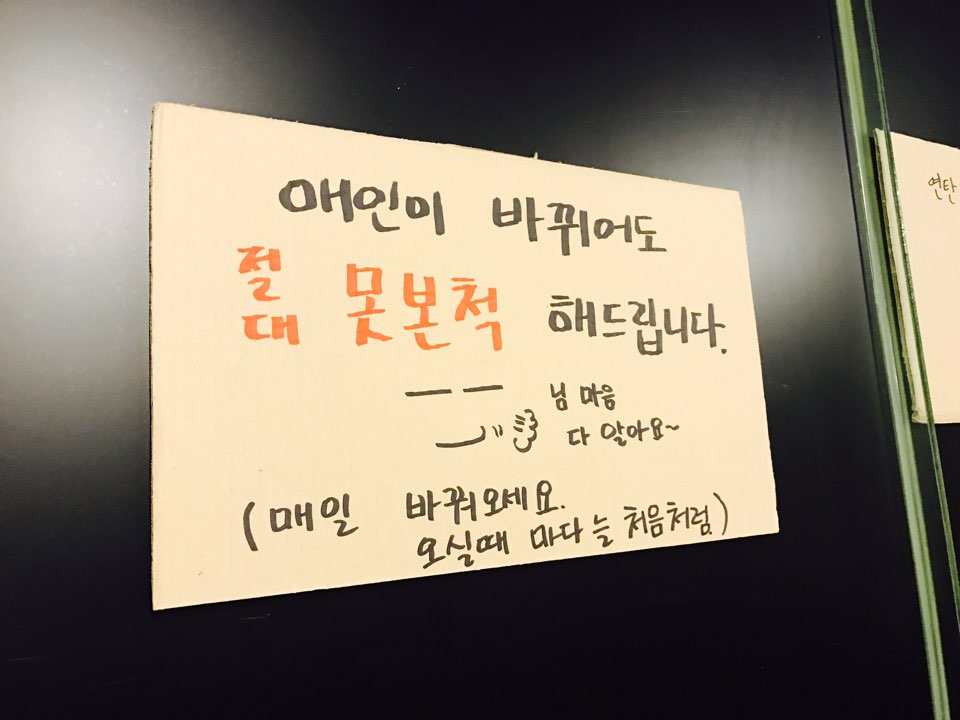 애인이 바뀌어도
절대 못본척 해드립니다.
님 마음
다 알아요~
(매일 바꿔오세요.
오실때 마다 늘 처음처럼.)
연탄